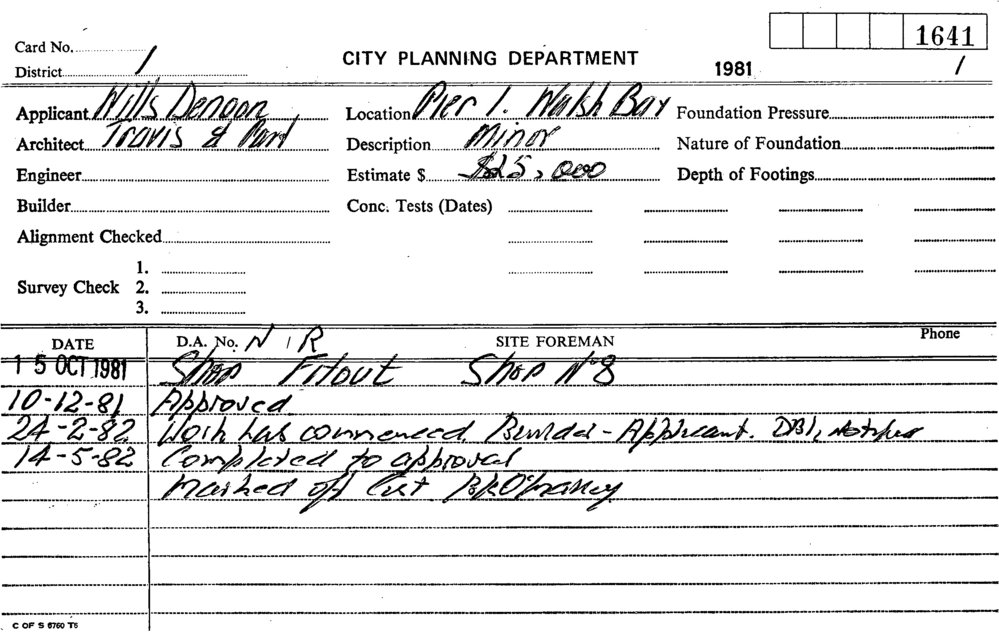 1641
Card No.
1
CITY PLANNING DEPARTMENT
1981
1
District
Applicant Wills Denoon
Location Pier 1. Walsh Bay
Foundation Pressure
Architect Travis &
Description Minor
Nature of Foundation
Engineer
Estimate $ $25,000
Depth of Footings
Builder
Conc. Tests (Dates)
Alignment Checked
1.
Survey Check 2.
3.
DATE
D.A. No. N / R
SITE FOREMAN
Phone
15 OCT 1981 Shop Fitout Shop No 8
10-12-81 Approved
24-2-82 Work has commenced. Builder - Applicant.
14-5-82 Completed to approval
marked off List
C OF S 6760 T5